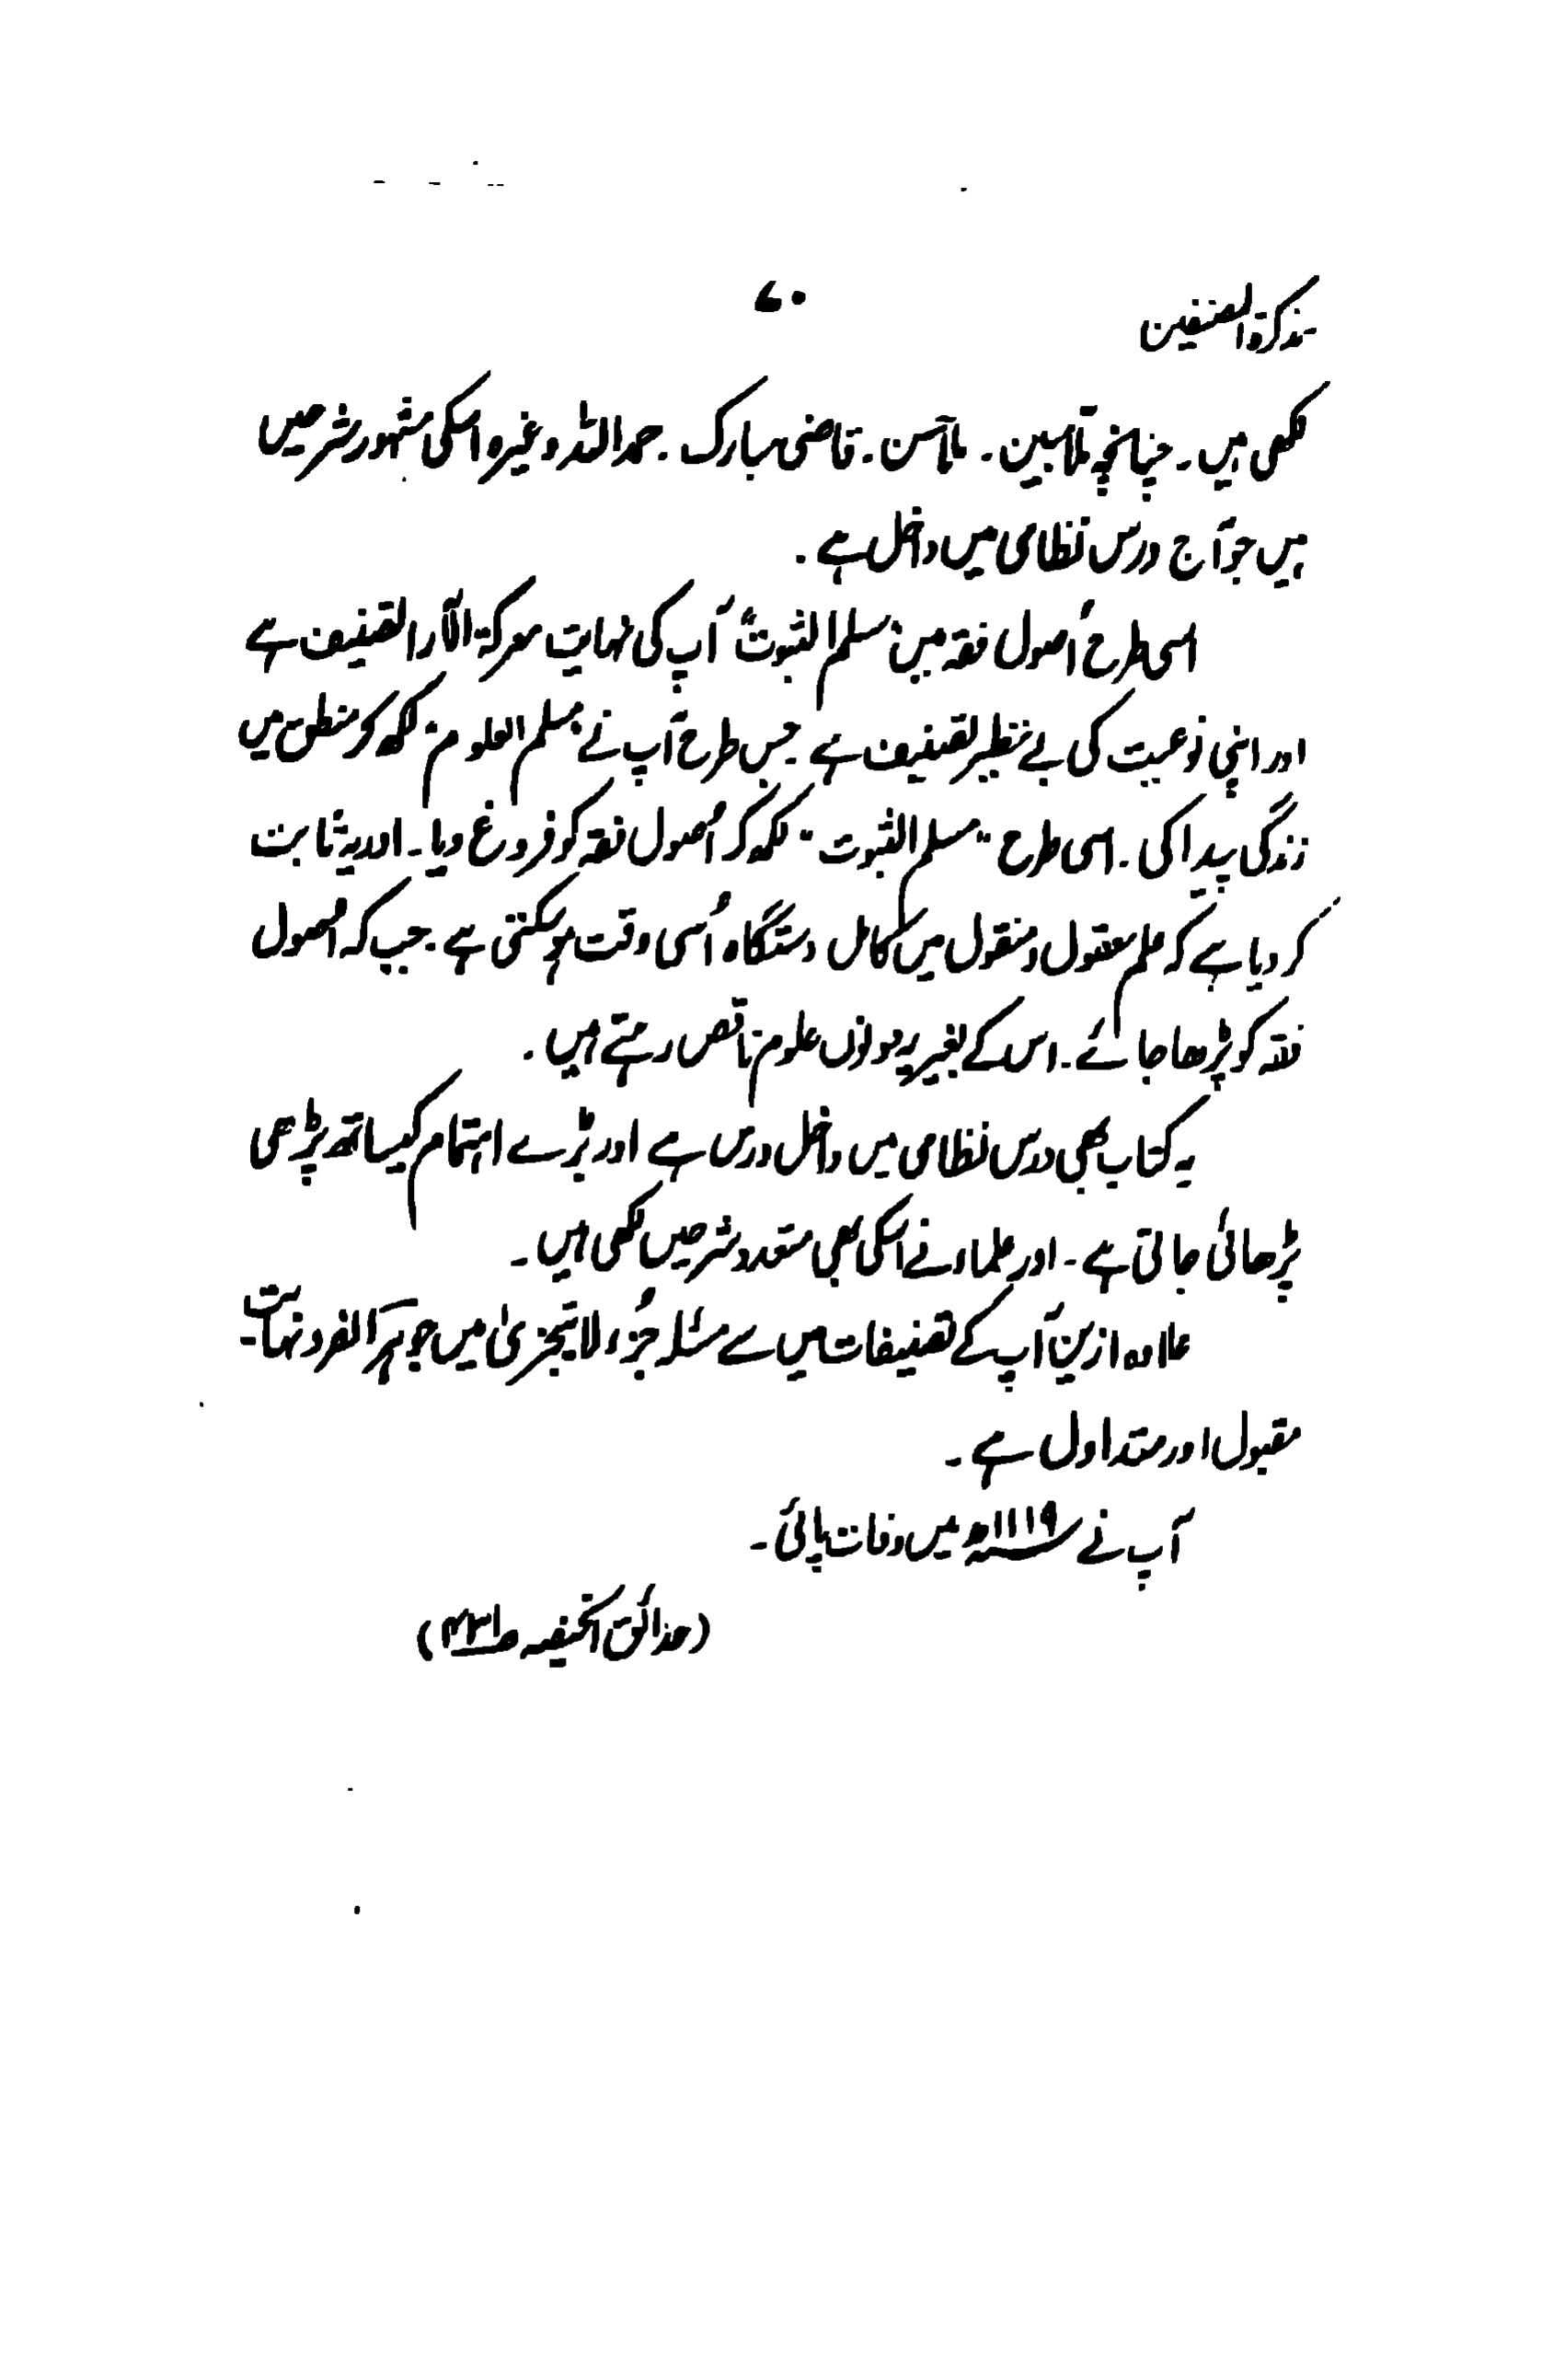 تذکرۃ المصنفین
۷۰
لکھی ہیں۔ چنانچہ ملا مبین۔ ملا حسن۔ قاضی مبارک۔ حمد اللہ وغیرہ اسکی مشہور شرحیں
ہیں جو آج درس نظامی میں داخل ہے۔
اسی طرح اُصول فقہ میں "مسلم الثبوت" آپ کی نہایت معرکۃ الآرا تصنیف ہے
اور اپنی نوعیت کی بے نظیر تصنیف ہے جس طرح آپ نے "سلم العلوم" لکھ کر منطق میں
زندگی پیدا کی۔ اسی طرح "مسلم الثبوت" لکھ کر اُصول فقہ کو فروغ دیا۔ اور یہ ثابت
کر دیا ہے کہ علم معقول و منقول میں کامل دستگاہ اُسی وقت ہوسکتی ہے۔ جب کہ اُصول
فقہ کو پڑھا جائے۔ اس کے بغیر یہ دونوں علوم ناقص رہتے ہیں۔
یہ کتاب بھی درس نظامی میں داخل درس ہے اور بڑے اہتمام کیساتھ پڑھی
پڑھائی جاتی ہے۔ اور علماء نے اسکی بھی متعدد شرحیں لکھی ہیں۔
علاوہ ازیں آپ کے تصنیفات میں سے مسئلہ جُزء لا یتجزیٰ میں جوہر الفرد نہایت
مقبول اور متداول ہے۔
آپ نے ۱۱۱۹ھ میں وفات پائی۔
(حدائق الحنفیہ